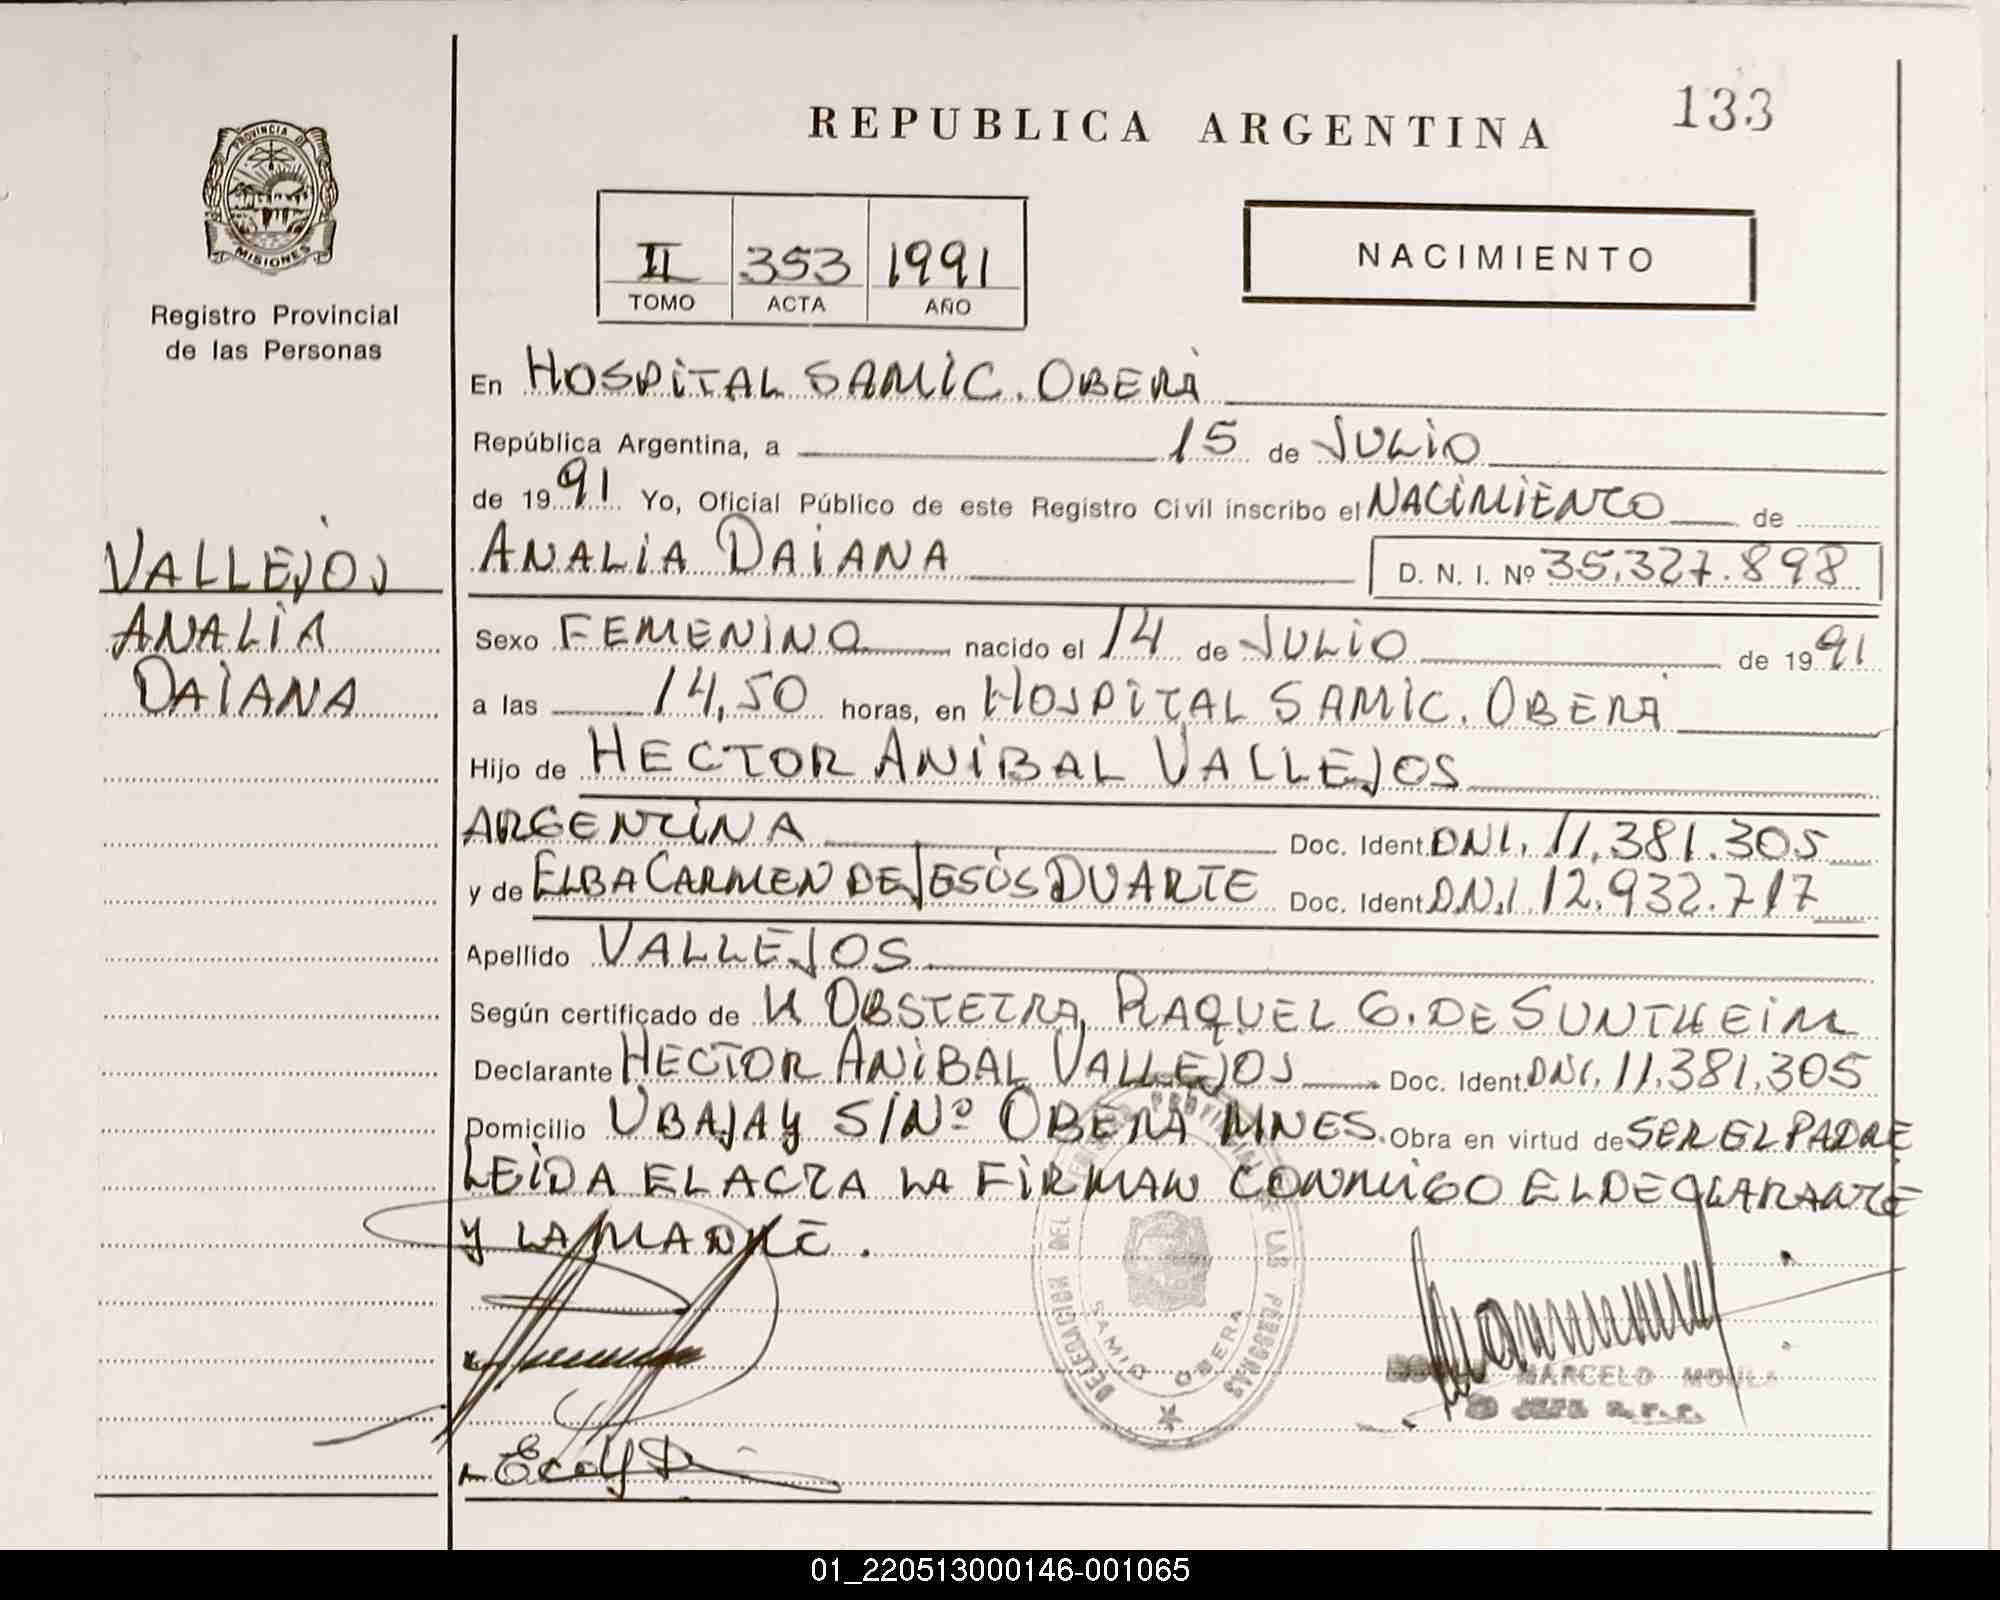 REPUBLICA ARGENTINA
133
PROVINCIA DE
MISIONES
Registro Provincial
de las Personas
II 353 1991
TOMO ACTA AÑO
NACIMIENTO
En HOSPITAL SAMIC. OBERÁ
República Argentina, a 15 de JULIO
de 1991 Yo, Oficial Público de este Registro Civil inscribo el NACIMIENTO de
VALLEJOS
ANALIA
DAIANA
ANALIA DAIANA D. N. I. Nº 35.327.898
Sexo FEMENINO nacido el 14 de JULIO de 1991
a las 14,50 horas, en HOSPITAL SAMIC. OBERÁ
Hijo de HECTOR ANIBAL VALLEJOS
ARGENTINA Doc. Ident. DNI. 11.381.305
y de ELBA CARMEN DE JESÚS DUARTE Doc. Ident. D.N.I 12.932.717
Apellido VALLEJOS
Según certificado de LA OBSTETRA RAQUEL G. DE SUNTHEIM
Declarante HECTOR ANIBAL VALLEJOS Doc. Ident. DNI. 11.381.305
Domicilio UBAJAY S/Nº OBERÁ MNES. Obra en virtud de SER EL PADRE
LEIDA EL ACTA LA FIRMAN CONMIGO EL DECLARANTE
Y LA MADRE.
DELEGACION DEL REGISTRO PROVINCIAL DE LAS PERSONAS
SAMIC OBERA
MARCELO
JEFE R.P.P.
01_220513000146-001065